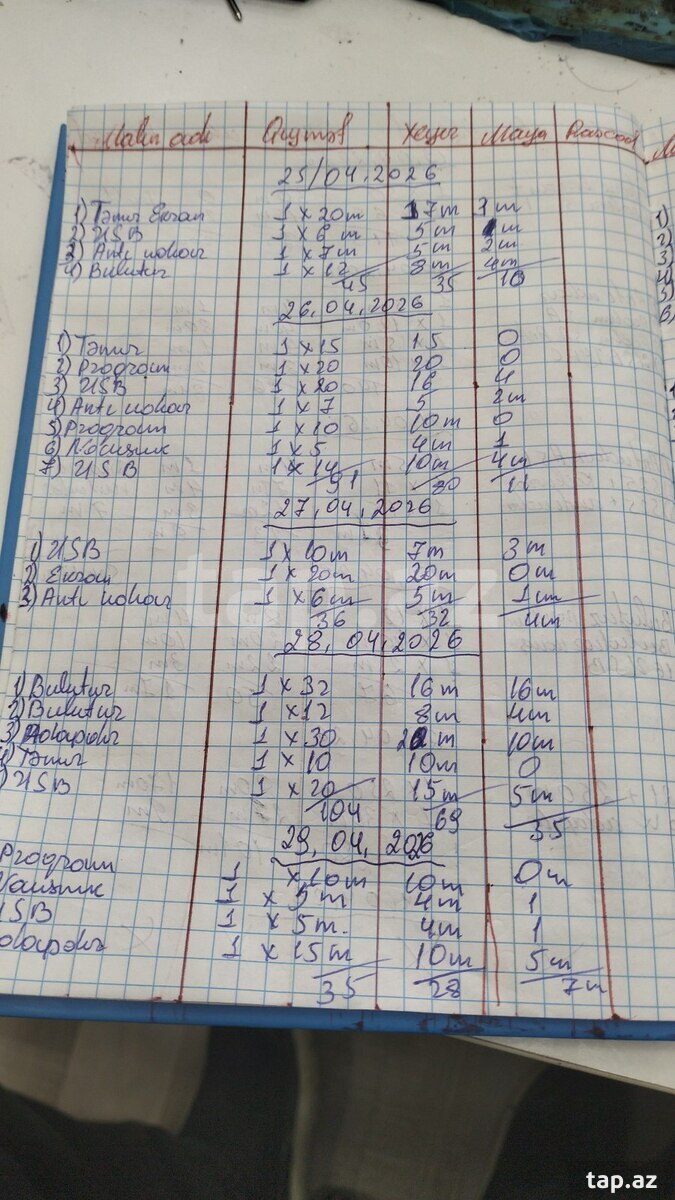 Malın adı Qiymət Xeyir Maya Rasxod
25/04.2026
1) Təmir Ekran 1 x 20m 17m 3m
2) USB 1 x 6m 5m 1m
3) Anti nokar 1 x 7m 5m 2m
4) Bulutuz 1 x 12 8m 4m
45 35 10
26.04.2026
1) Təmir 1 x 15 15 0
2) Program 1 x 20 20 0
3) USB 1 x 20 16 4
4) Anti nokar 1 x 7 5 2m
5) Program 1 x 10 10m 0
6) Nauşnik 1 x 5 4m 1
7) USB 1 x 14 10m 4m
91 80 11
27.04.2026
1) USB 1 x 10m 7m 3m
2) Ekran 1 x 20m 20m 0m
3) Anti nokar 1 x 6m 5m 1m
36 32 4m
28.04.2026
1) Bulutuz 1 x 32 16m 16m
2) Bulutuz 1 x 12 8m 4m
3) Adapdır 1 x 30 20m 10m
Təmir 1 x 10 10m 0
USB 1 x 20 15m 5m
104 69 35
29.04.2026
Program 1 x 10m 10m 0m
Nauşnik 1 x 5m 4m 1
USB 1 x 5m. 4m 1
dapdır 1 x 15m 10m 5m
35 28 7m
tap.az
tap.az